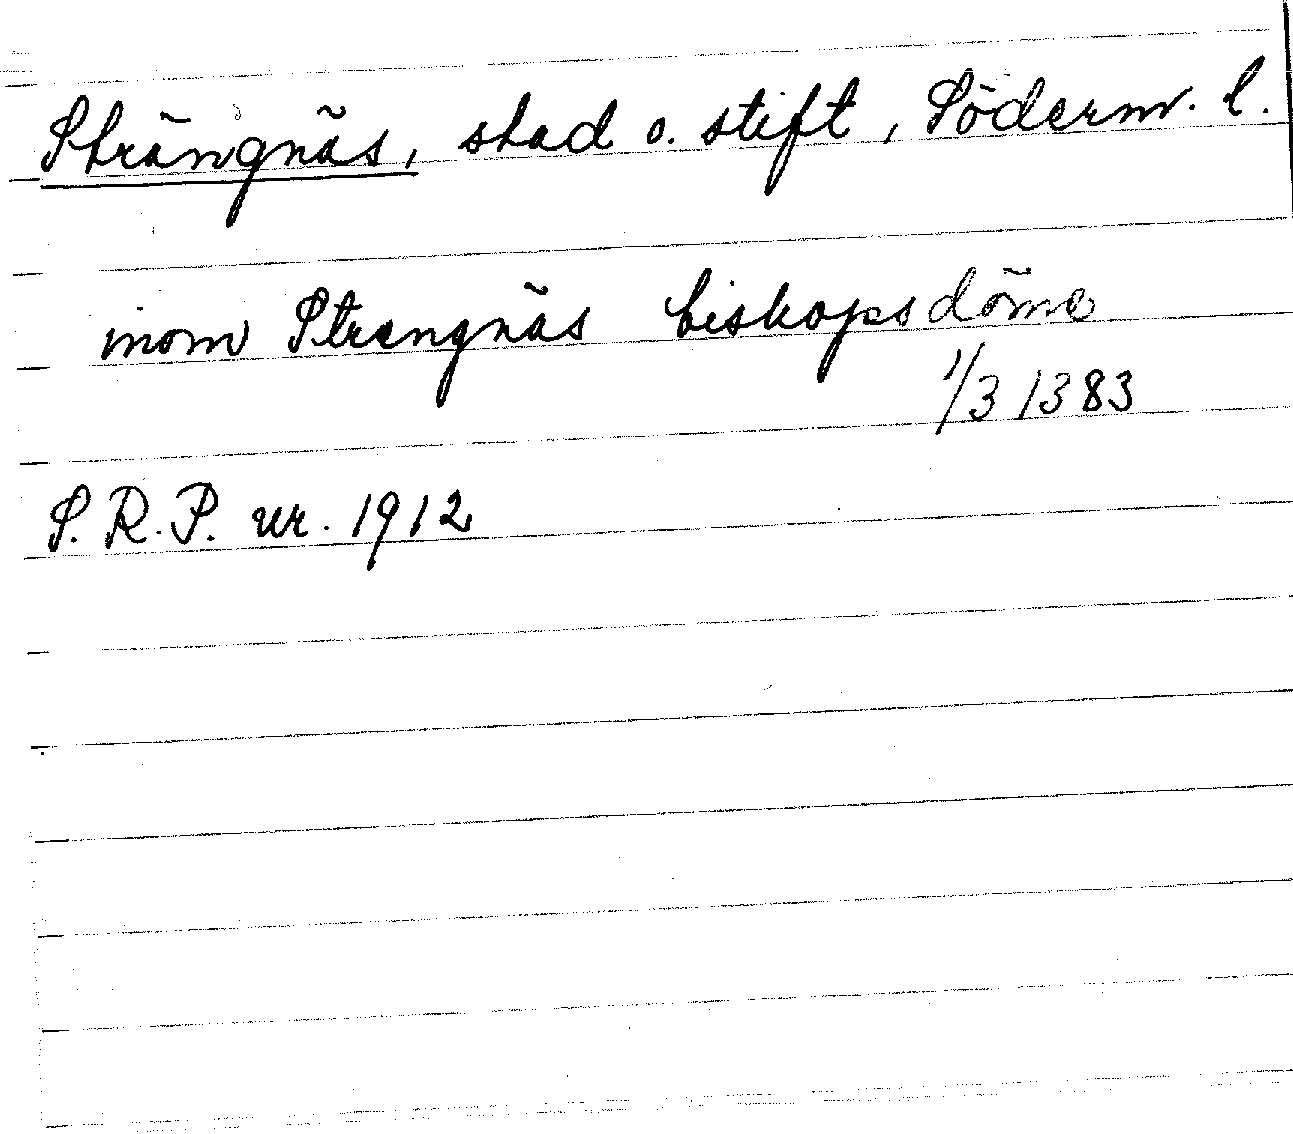 Strängnäs, stad o. stift, Söderm. l.
inom Strengnäs biskopsdöme
1/3 1383
S. R. P. nr. 1912